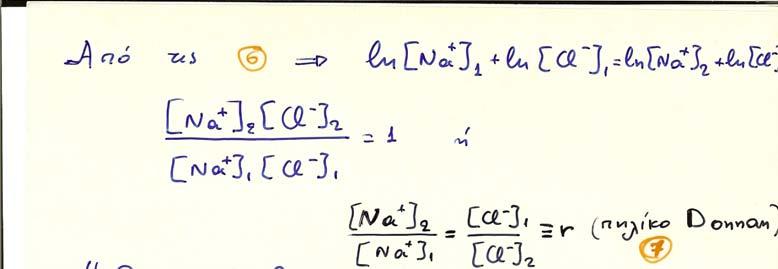 Από τις ⑥ ⇒ ln[Na⁺]₁ + ln[Cl⁻]₁ = ln[Na⁺]₂ + ln[Cl
[Na⁺]₂[Cl⁻]₂ / [Na⁺]₁[Cl⁻]₁ = 1 ή
[Na⁺]₂ / [Na⁺]₁ = [Cl⁻]₁ / [Cl⁻]₂ ≡ r (πηλίκο Donnan)
⑦